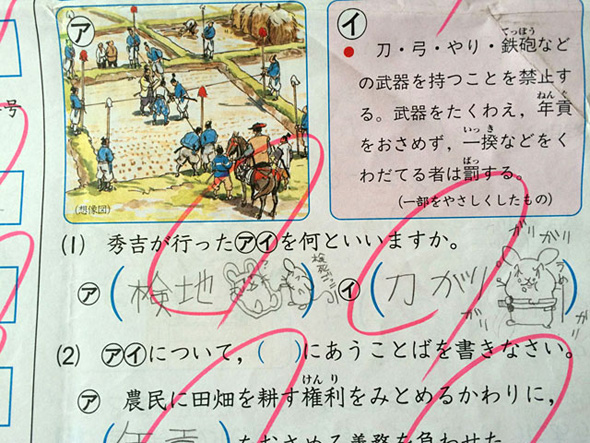 ㋐
(想像図)
㋑
てっぽう
● 刀・弓・やり・鉄砲など
の武器を持つことを禁止す
ねんぐ
る。武器をたくわえ,年貢
いっき
をおさめず,一揆などをく
ばっ
わだてる者は罰する。
(一部をやさしくしたもの)
号
(1) 秀吉が行った㋐㋑を何といいますか。
㋐(検地) ㋑(刀がり)
ガリガリ
ガリ
ガリ
(2) ㋐㋑について,( )にあうことばを書きなさい。
けんり
㋐ 農民に田畑を耕す権利をみとめるかわりに,
(年貢)をおさめる義務を負わせた